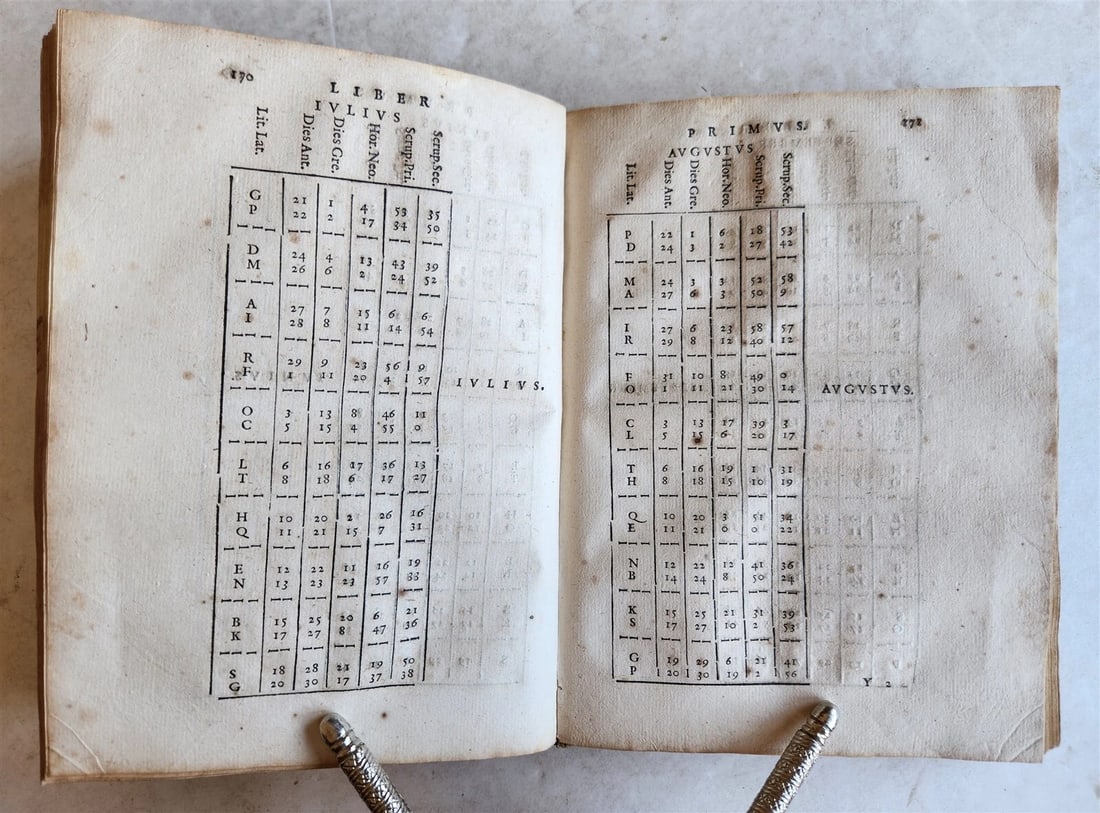 170
LIBER
IVLIVS
Lit. Lat. Dies Ant. Dies Gre. Hor. Neo. Scrup. Pri. Scrup. Sec.
G 21 1 4 53 35
P 22 2 17 34 50
D 24 4 13 43 39
M 26 6 2 24 52
A 27 7 15 6 6
I 28 8 11 14 54
R 29 9 23 56 9
F 1 11 20 4 57
IVLIVS.
O 3 13 8 46 11
C 5 15 4 55 0
L 6 16 17 36 13
T 8 18 6 17 27
H 10 20 2 26 16
Q 11 21 15 7 31
E 12 22 11 16 19
N 13 23 23 57 33
B 15 25 20 6 21
K 17 27 8 47 36
S 18 28 21 19 50
G 20 30 17 37 38
PRIMVS. 171
AVGVSTVS
Lit. Lat. Dies Ant. Dies Gre. Hor. Neo. Scrup. Pri. Scrup. Sec.
P 22 1 6 18 53
D 24 3 2 27 42
M 24 3 3 52 58
A 27 6 3 50 9
I 27 6 23 58 57
R 29 8 12 40 12
F 31 10 8 49 0
O 1 11 21 30 14
AVGVSTVS.
C 3 13 17 39 3
L 5 15 6 20 17
T 6 16 19 1 31
H 8 18 15 10 19
Q 10 20 3 51 34
E 11 21 6 0 22
N 12 22 12 41 36
B 14 24 8 50 24
K 15 25 21 31 39
S 17 27 10 2 53
G 19 29 6 21 41
P 20 30 19 2 56
Y 2